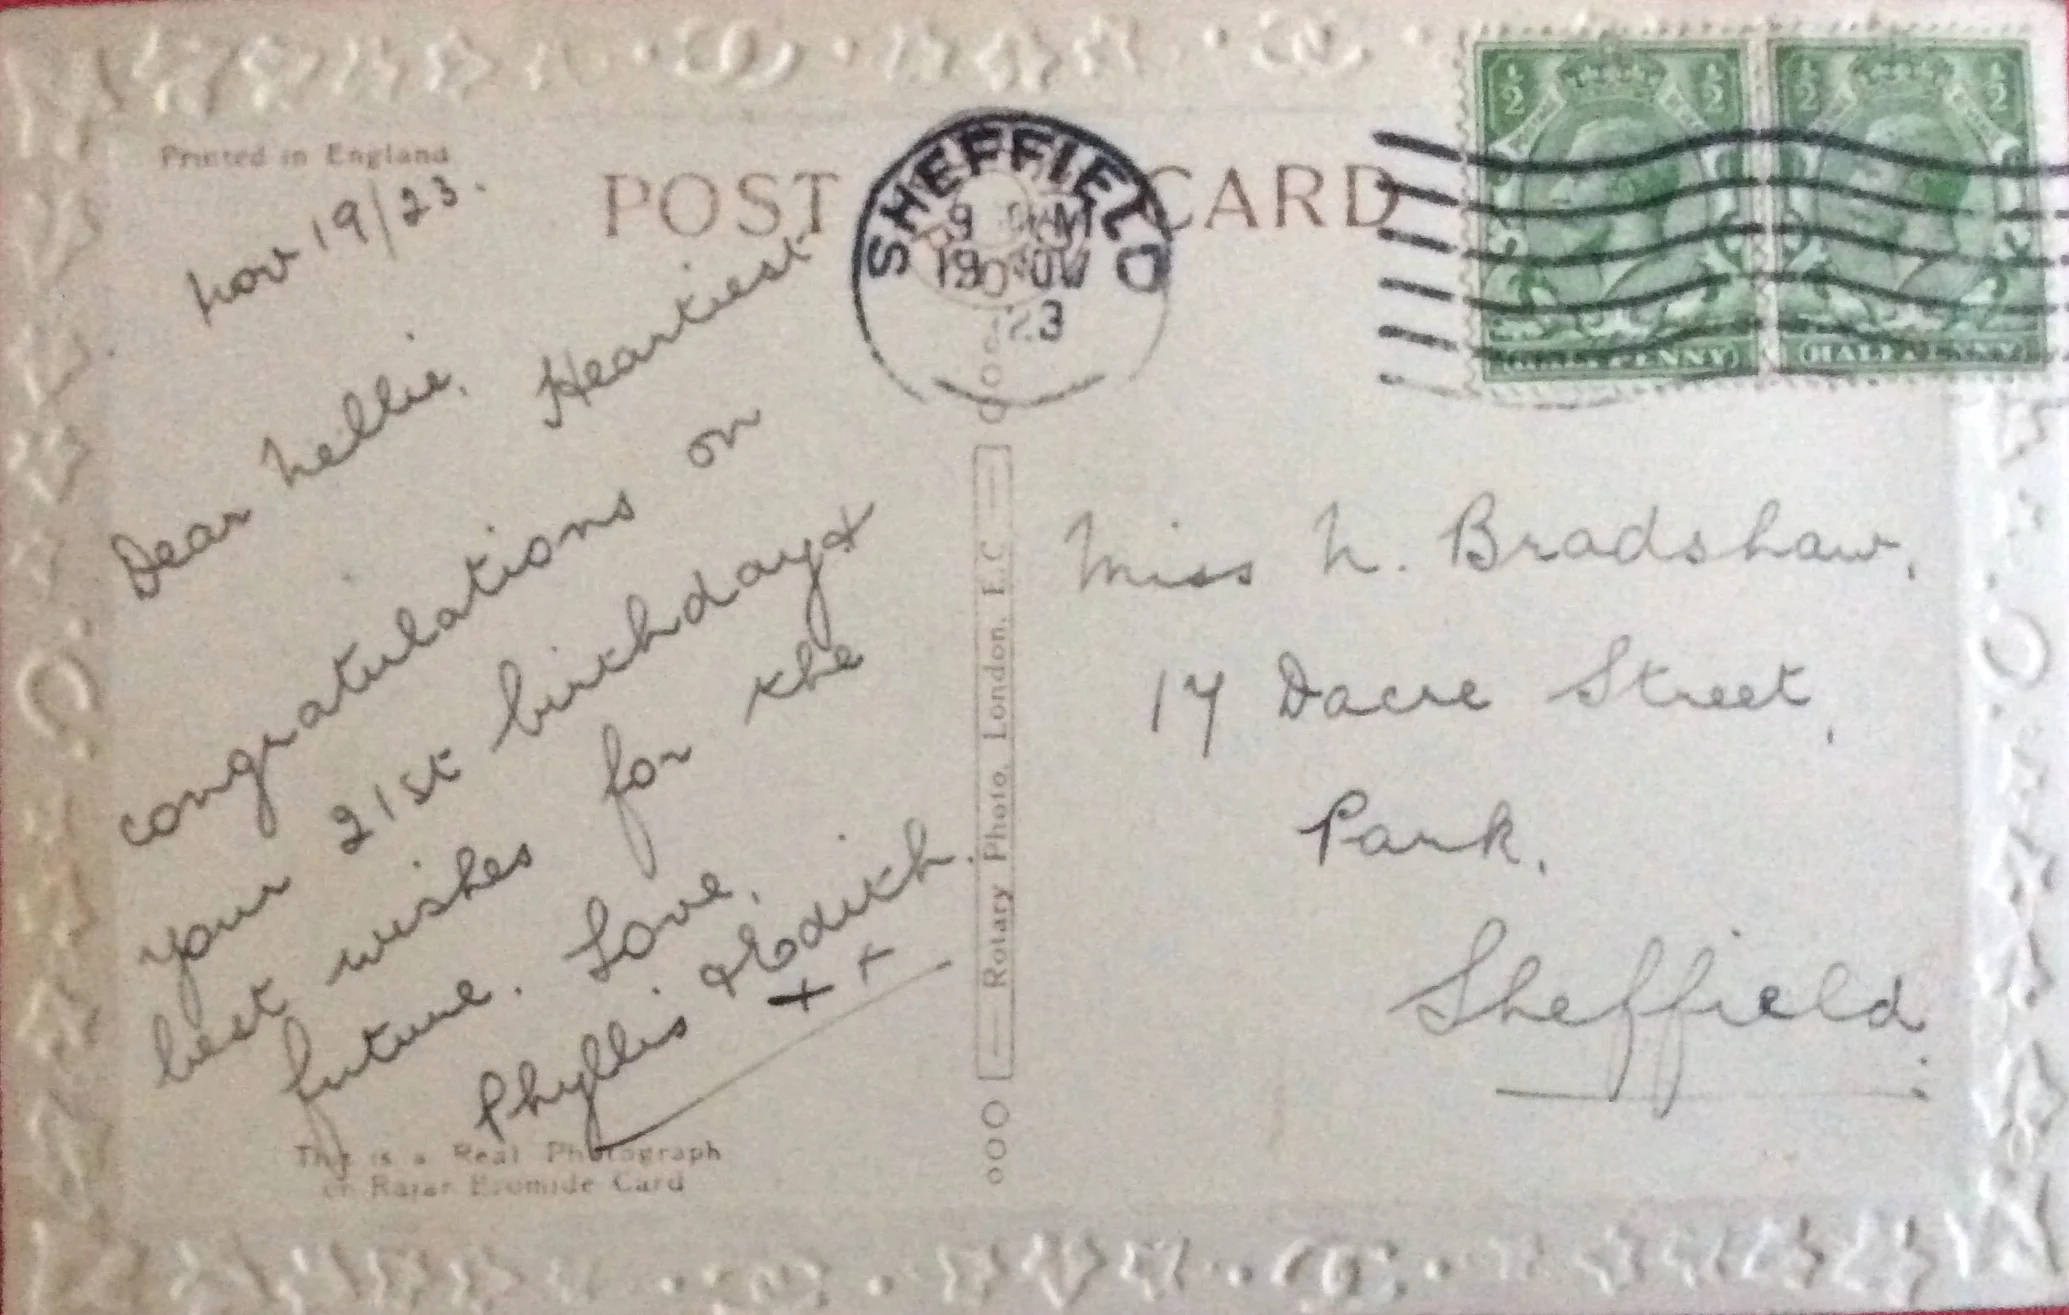 Printed in England
POST CARD
SHEFFIELD
19 NOV
23
½ ½ ½ ½
HALFPENNY HALFPENNY
Nov 19/23.
Dear Nellie. Heartiest
congratulations on
your 21st birthday &
best wishes for the
future. Love.
Phyllis & Edith.
+ +
This is a Real Photograph
on Rajar Bromide Card
Rotary Photo, London, E.C
Miss N. Bradshaw,
17 Dacre Street,
Park.
Sheffield.